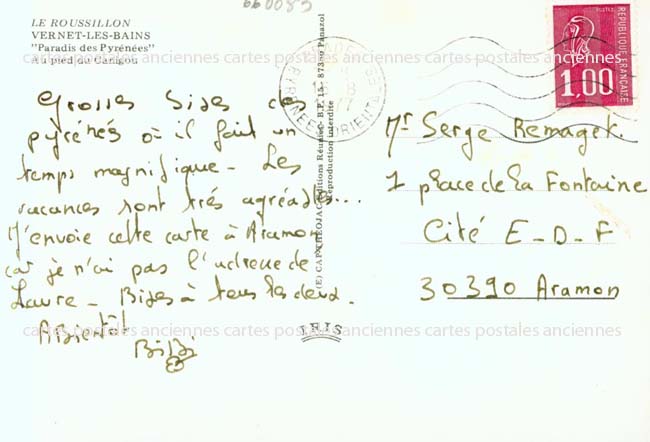 660083
LE ROUSSILLON
VERNET-LES-BAINS
"Paradis des Pyrénées"
Au pied du Canigou
Grosses Bises des
pyrénés où il fait un
temps magnifique - Les
vacances sont trés agréable...
J'envoie cette carte à Aramon
car je n'ai pas l'adresse de
Laure - Bises à tous les deux.
A Bientôt
BiBi
(E) CAP-THEOJAC Editions Réunies. B.P. 15 - 87350 Panazol
Reproduction interdite
IRIS
PYRENEES ORIENTALES
POSTES
1,00
REPUBLIQUE FRANÇAISE
Mr Serge Remagek.
1 place de la Fontaine
Cité E-D-F
30390 Aramon
cartes postales anciennes cartes postales anciennes cartes postales anciennes
cartes postales anciennes cartes postales anciennes cartes postales anciennes
cartes postales anciennes cartes postales anciennes cartes postales anciennes